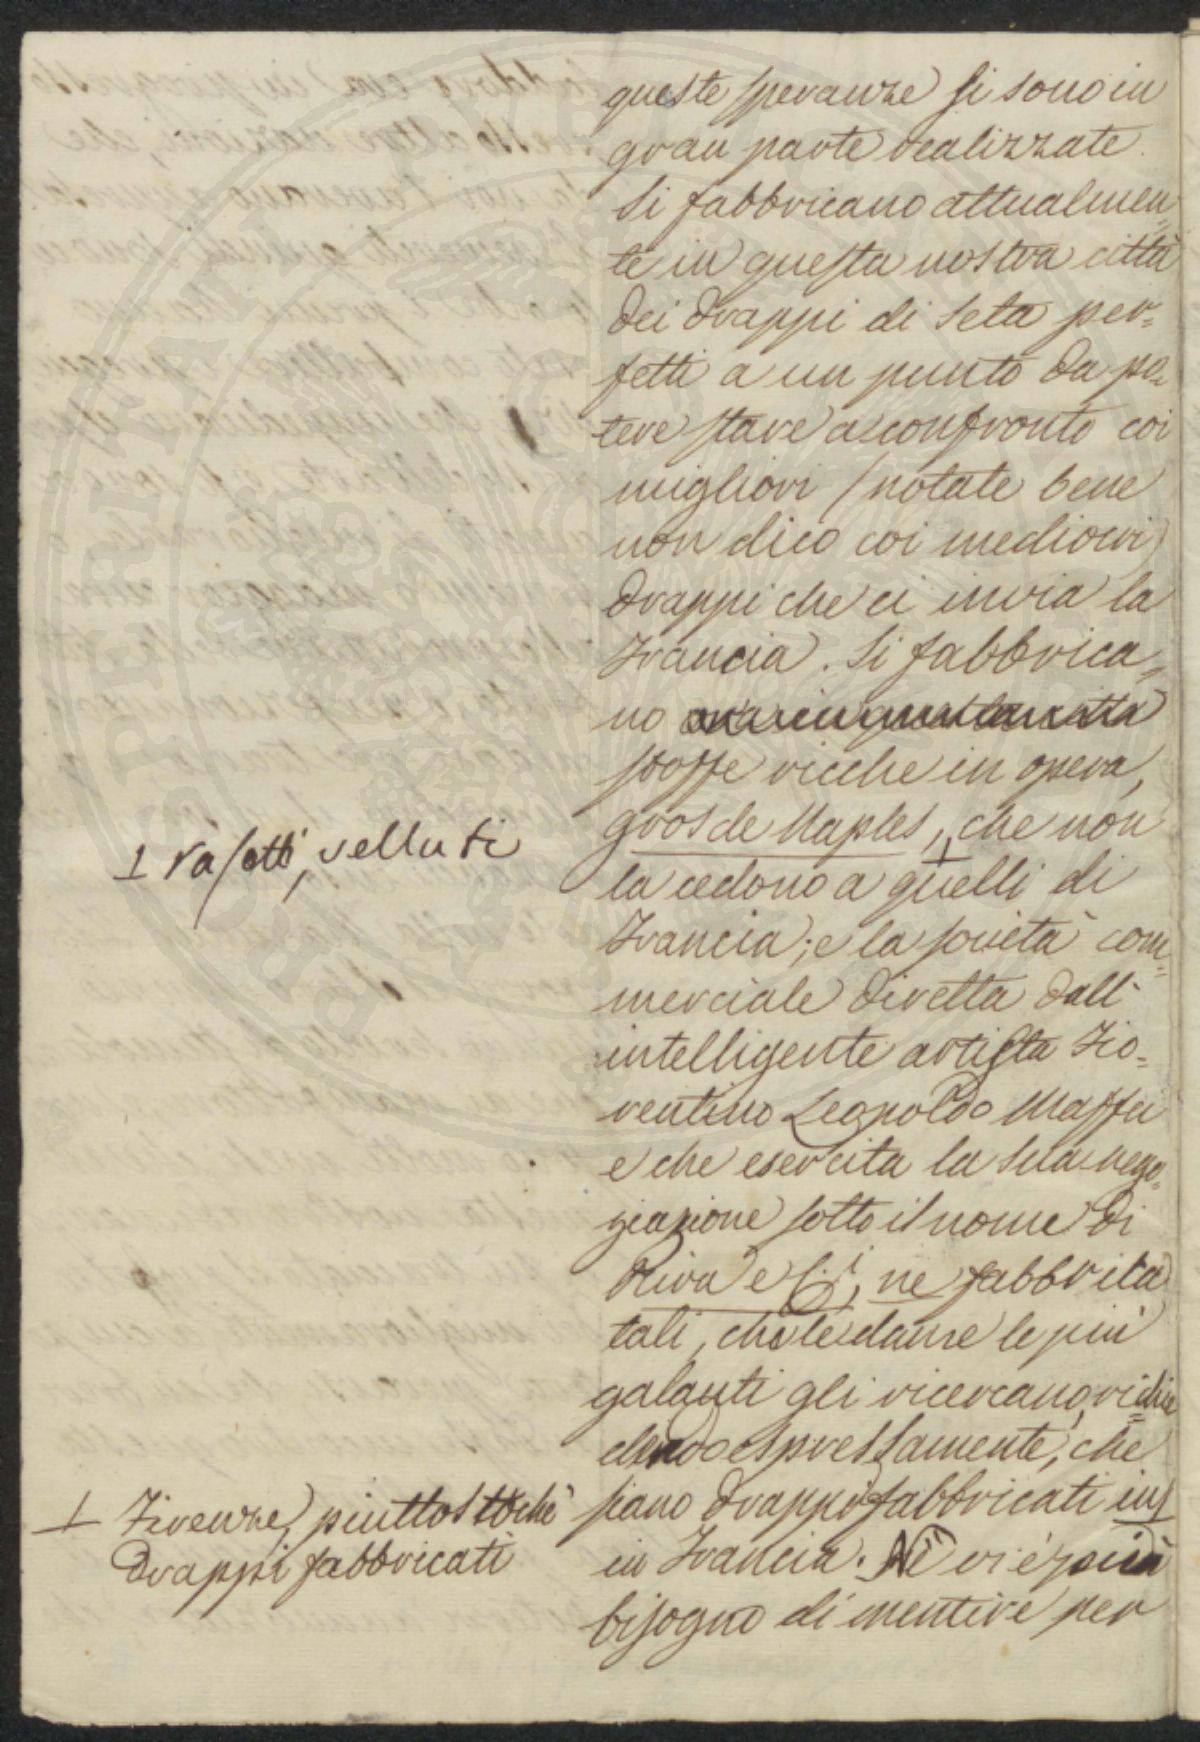 queste speranze si sono in
gran parte realizzate.
Si fabbricano attualmen=
te in questa nostra città
dei drappi di seta per=
fetti a un punto da po=
tere stare a confronto coi
migliori (notate bene
non dico coi mediocri)
drappi che ci invia la
Francia. Si fabbrica=
no
stoffe ricche in opera,
gros de Naples, ⊥ che non
la cedono a quelli di
Francia; e la società com=
merciale diretta dall'
intelligente artista Fio=
rentino Leopoldo Maffei
e che esercita la sua nego=
ziazione sotto il nome di
Riva e Ci, ne fabbrica
tali, che le dame le più
galanti gli ricercano, richie=
dendo espressamente, che
siano drappi fabbricati in ⊥
in Francia. Nè vi è più
bisogno di mentire per
⊥ rasetti, velluti
⊥ Firenze, piuttostochè
drappi fabbricati